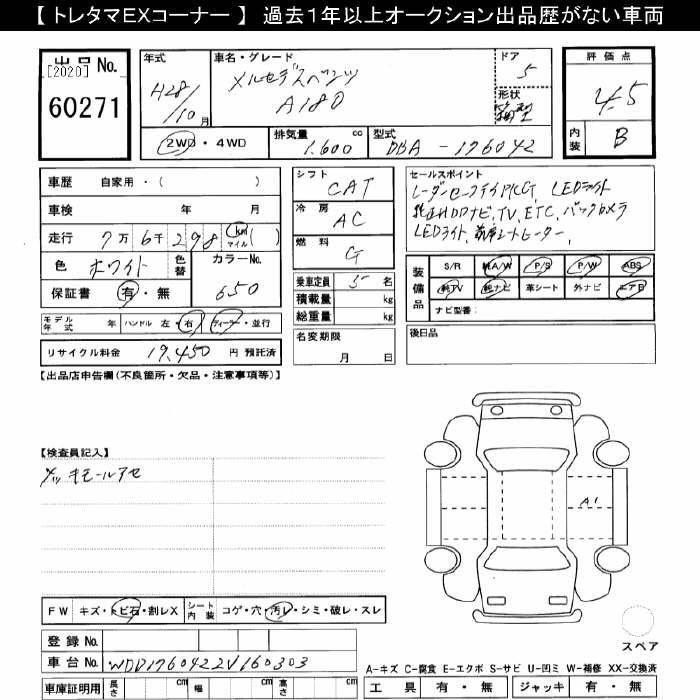 【 トレタマEXコーナー 】 過去1年以上オークション出品歴がない車両
出品 No.
[2020]
60271
年式
H28/10 月
車名・グレード
メルセデスベンツ
A180
ドア
5
形状
評価点
4.5
内装
B
2WD・4WD
排気量
1.600 cc
型式
DBA-176042
車歴 自家用・( )
車検 年 月
走行 7万 6千 298 km マイル ( )
色 ホワイト
色替
カラーNo.
650
保証書 有・無
モデル年式 年 ハンドル 左・右 ディーラー・並行
リサイクル料金 19,450 円 預託済
シフト
CAT
冷房
AC
燃料
G
乗車定員 5 名
積載量 kg
総重量 kg
名変期限
月 日
セールスポイント
レーダーセーフティPKG, LEDライト
純正HDDナビ, TV, ETC, バックカメラ
LEDライト, 前席シートヒーター,
装備品
S/R 純A/W P/S P/W ABS
純TV 純ナビ 革シート 外ナビ エアB
ナビ型番:
後日品
【出品店申告欄(不良箇所・欠品・注意事項等)】
【検査員記入】
メッキモールアセ
A1
FW キズ・トビ石・割レX
シート内装 コゲ・穴・汚レ・シミ・破レ・スレ
登録 No.
車台 No. WDD1760422V160303
車庫証明用 長さ cm 幅 cm 高さ cm
スペア
A-キズ C-腐食 E-エクボ S-サビ U-凹ミ W-補修 XX-交換済
工具 有・無 ジャッキ 有・無